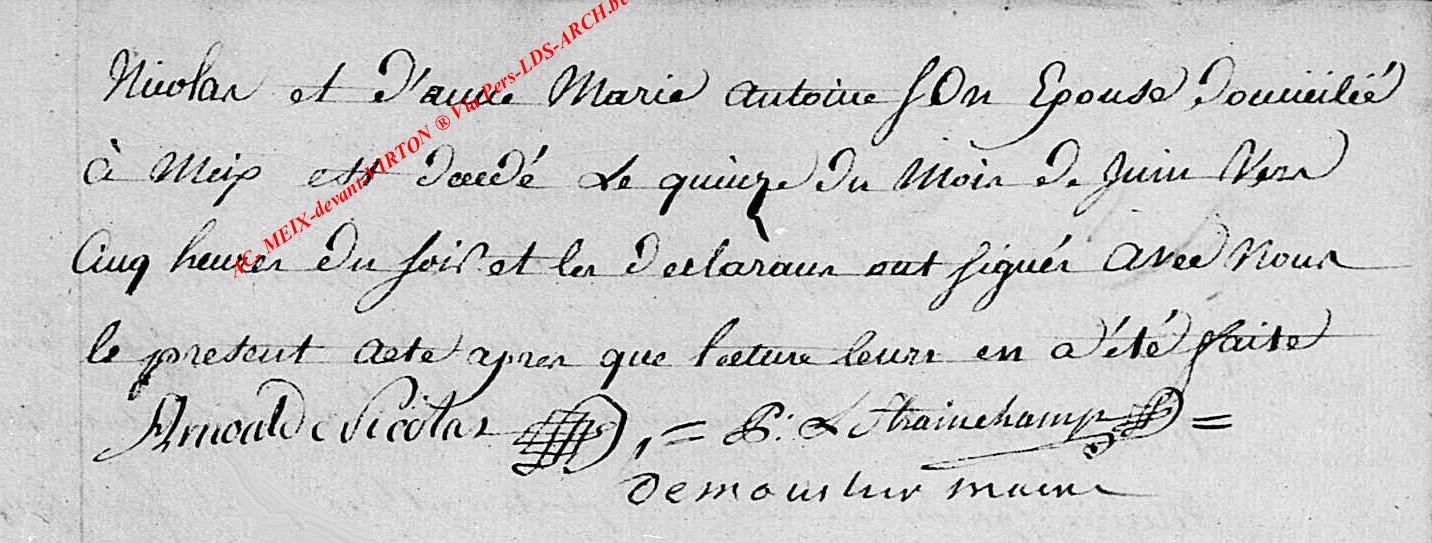 Nicolas et d'anne Marie antoine son Epouse domiciliée
à Meix est décédé Le quinze du Mois de Juin Vers
Cinq heures du soir et les declarans ont signés avec Nous
le present acte apres que lecture leurs en a été faite
Arnould Nicolas = P: L Strainchamp =
Demoustier maire
AC- MEIX-devant-VIRTON ® Via Pers-LDS-ARCH.be